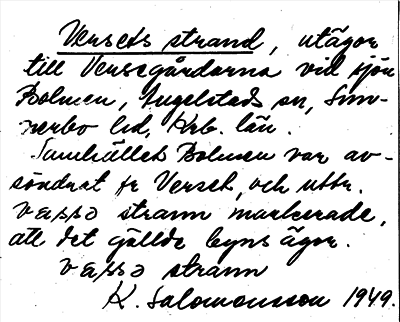 Versets strand, utägor
till Versegårdarna vid sjön
Bolmen, Angelstads sn, Sun-
nerbo hd, Krb. län.
Samhället Bolmen var av-
söndrat fr Verset, och uttr.
vɛssə strann markerade,
att det gällde byns ägor.
vɛssə strann
K. Salomonsson 1949.